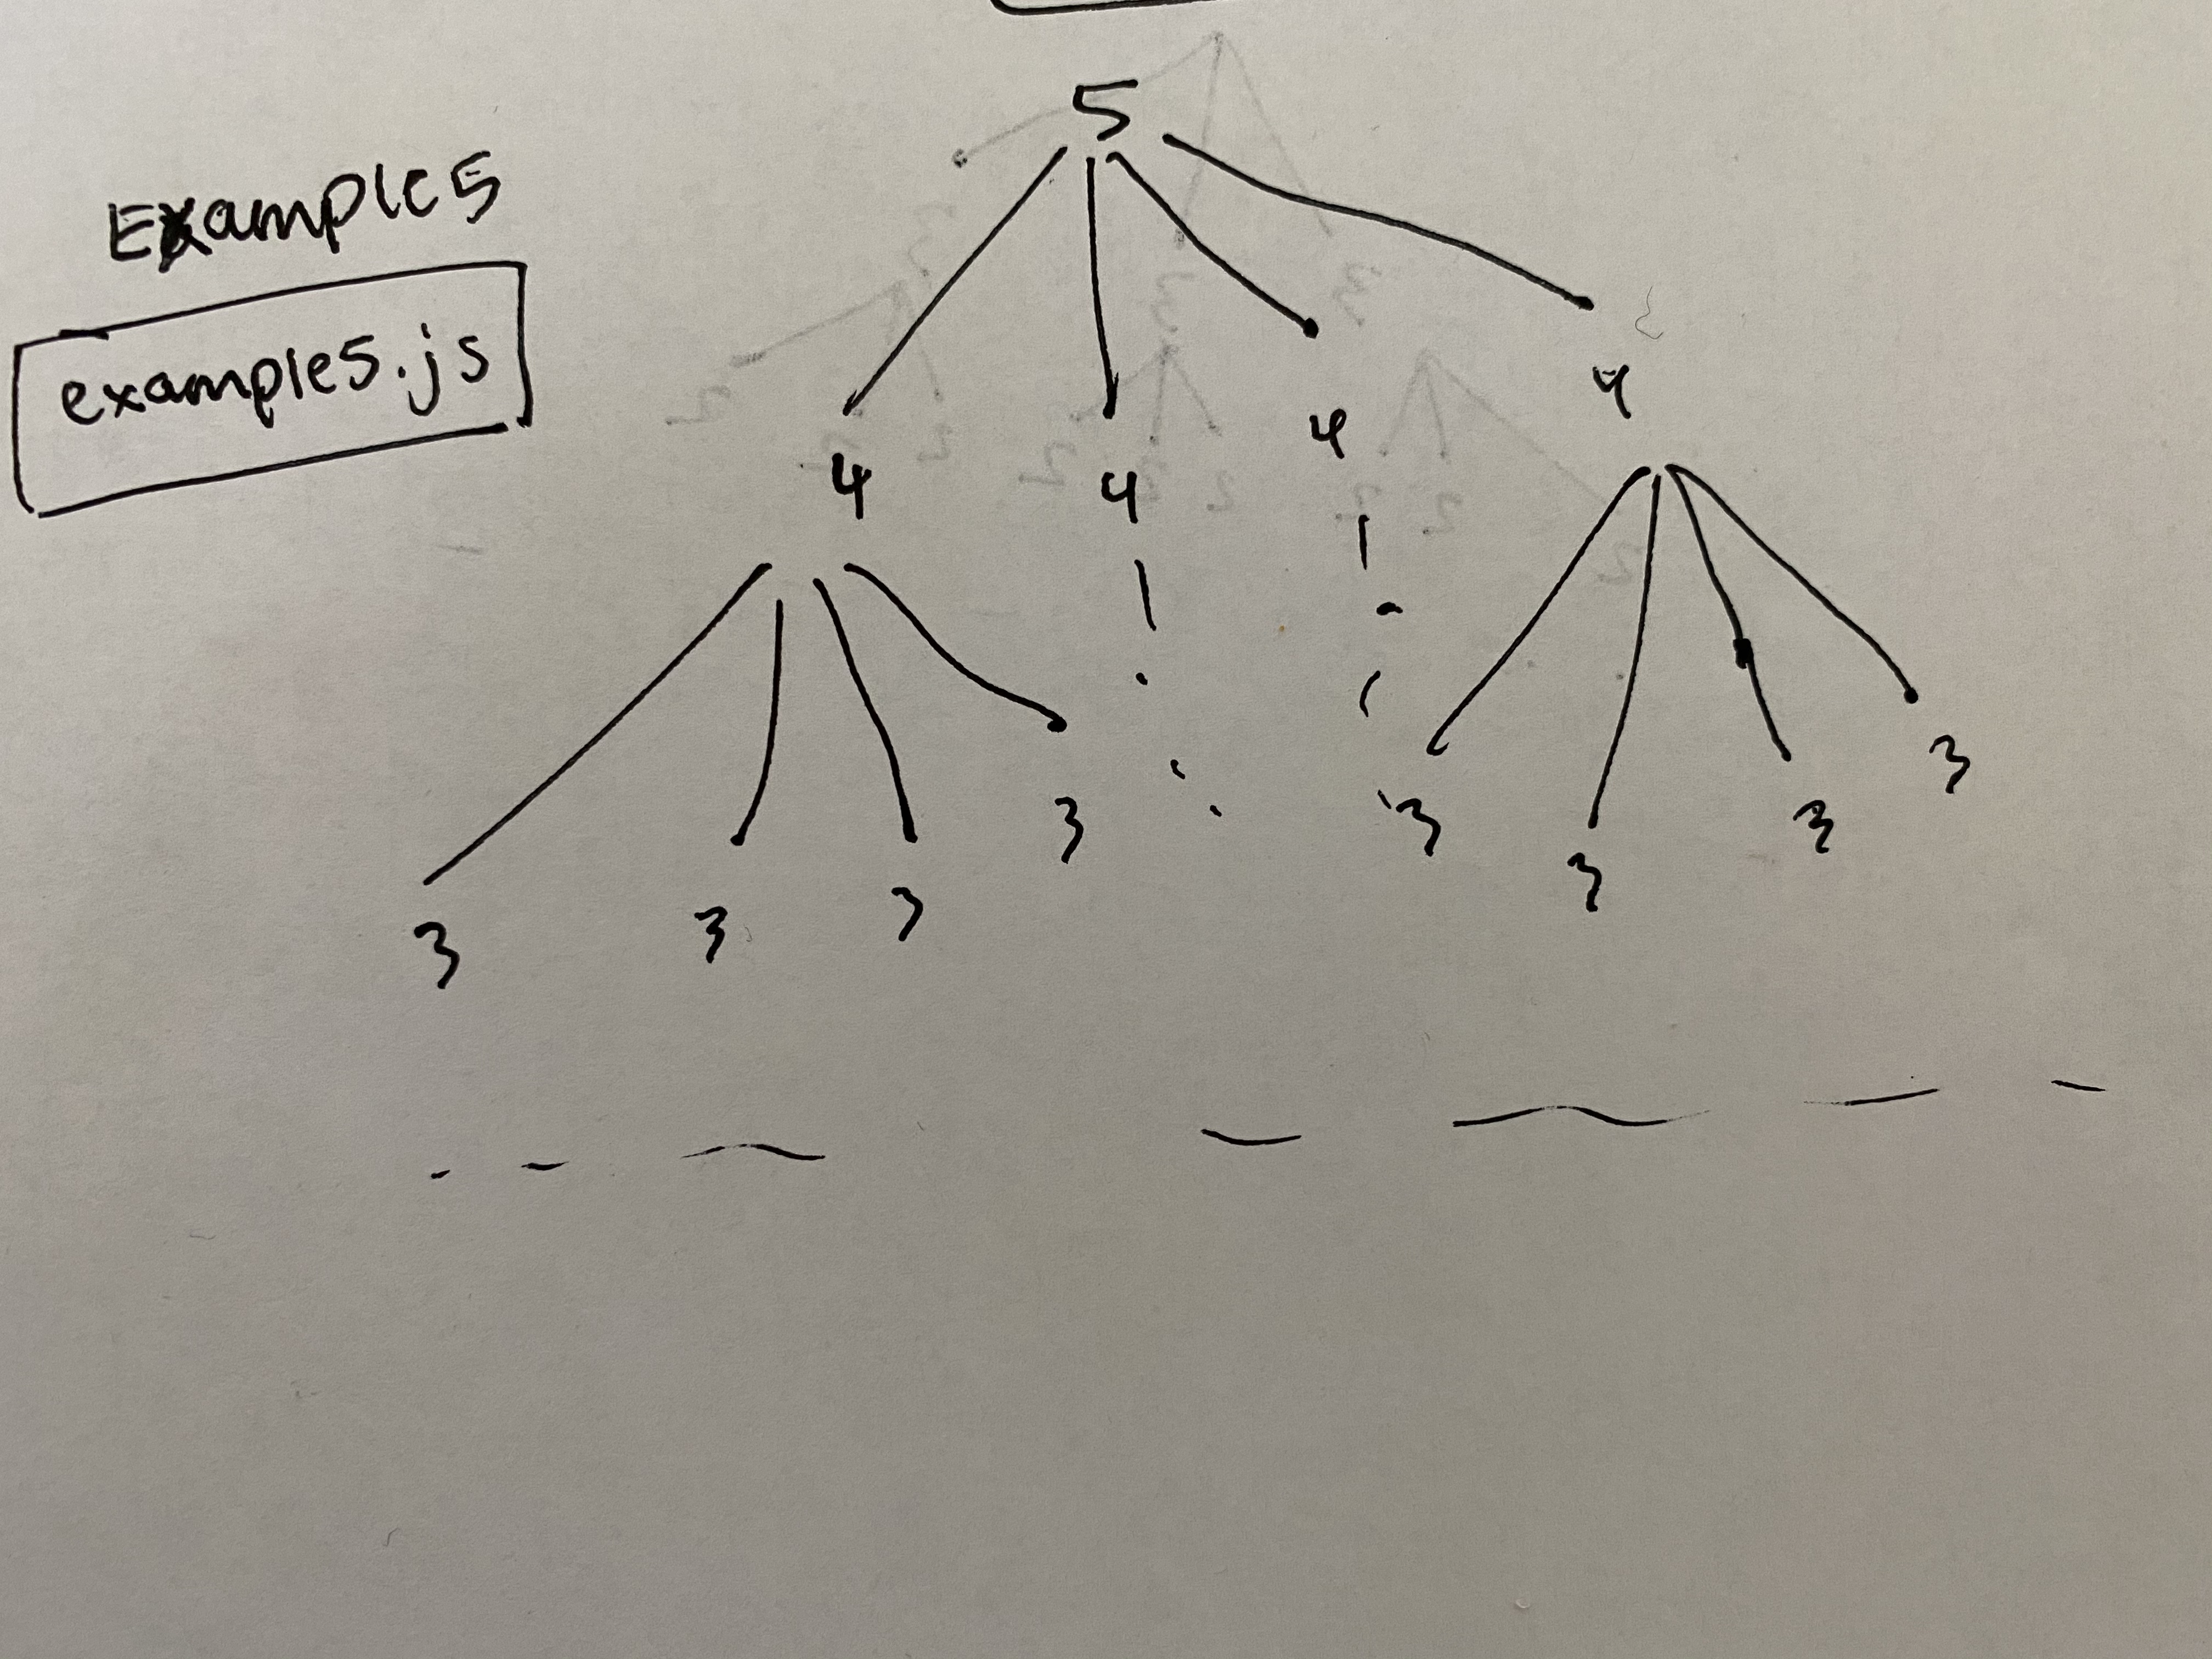 5
Example5
example5.js
4 4 4 4
3 3 3 3 3 3 3 3